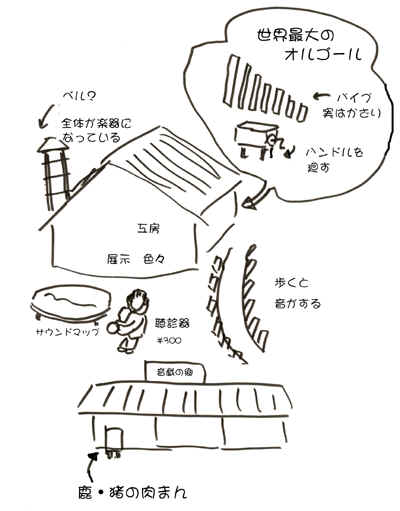 世界最大の
オルゴール
パイプ
実はかさい
ハンドルを
廻す
ベル?
全体が楽器に
なっている
工房
展示 色々
歩くと
音がする
サウンドマップ
聴診器
¥300
音戯の郷
鹿・猪の肉まん